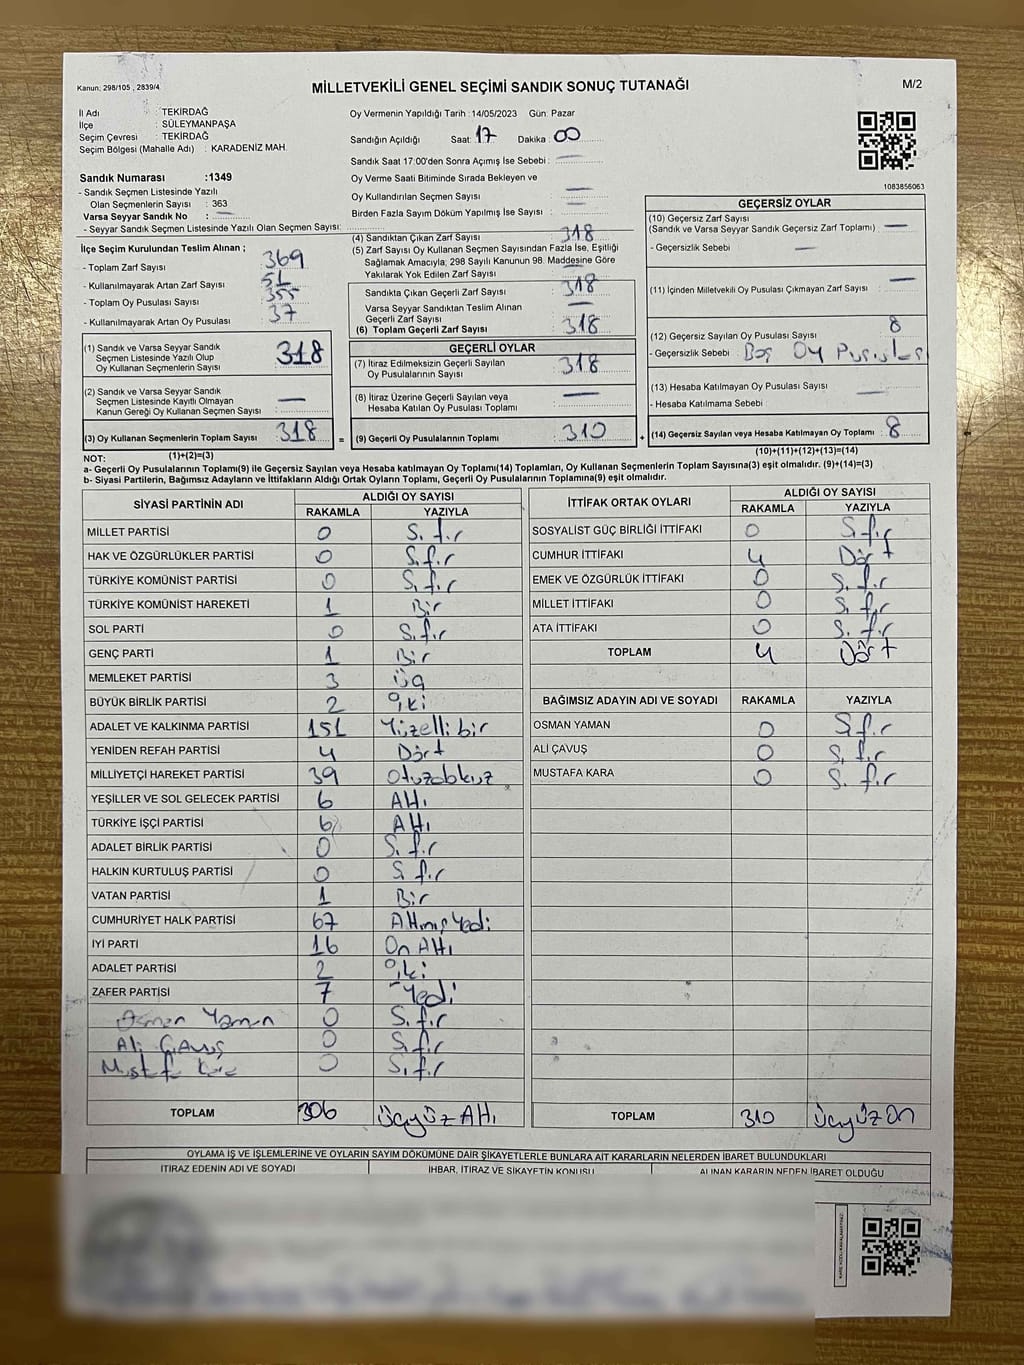 Kanun; 298/105 , 2839/4
MİLLETVEKİLİ GENEL SEÇİMİ SANDIK SONUÇ TUTANAĞI
M/2
İl Adı : TEKİRDAĞ
İlçe : SÜLEYMANPAŞA
Seçim Çevresi : TEKİRDAĞ
Seçim Bölgesi (Mahalle Adı) : KARADENİZ MAH.
Oy Vermenin Yapıldığı Tarih : 14/05/2023 Gün: Pazar
Sandığın Açıldığı Saat: 17 Dakika : 00
Sandık Saat 17:00'den Sonra Açımış İse Sebebi : —
Oy Verme Saati Bitiminde Sırada Bekleyen ve
Oy Kullandırılan Seçmen Sayısı : —
Birden Fazla Sayım Döküm Yapılmış İse Sayısı : —
1083856063
Sandık Numarası :1349
- Sandık Seçmen Listesinde Yazılı
Olan Seçmenlerin Sayısı : 363
Varsa Seyyar Sandık No : —
- Seyyar Sandık Seçmen Listesinde Yazılı Olan Seçmen Sayısı:
İlçe Seçim Kurulundan Teslim Alınan ;
- Toplam Zarf Sayısı : 369
- Kullanılmayarak Artan Zarf Sayısı : 51
- Toplam Oy Pusulası Sayısı : 355
- Kullanılmayarak Artan Oy Pusulası : 37
(1) Sandık ve Varsa Seyyar Sandık
Seçmen Listesinde Yazılı Olup
Oy Kullanan Seçmenlerin Sayısı : 318
(2) Sandık ve Varsa Seyyar Sandık
Seçmen Listesinde Kayıtlı Olmayan
Kanun Gereği Oy Kullanan Seçmen Sayısı : —
(3) Oy Kullanan Seçmenlerin Toplam Sayısı : 318
(4) Sandıktan Çıkan Zarf Sayısı : 318
(5) Zarf Sayısı Oy Kullanan Seçmen Sayısından Fazla İse, Eşitliği
Sağlamak Amacıyla; 298 Sayılı Kanunun 98. Maddesine Göre
Yakılarak Yok Edilen Zarf Sayısı : —
Sandıkta Çıkan Geçerli Zarf Sayısı : 318
Varsa Seyyar Sandıktan Teslim Alınan
Geçerli Zarf Sayısı : —
(6) Toplam Geçerli Zarf Sayısı : 318
GEÇERLİ OYLAR
(7) İtiraz Edilmeksizin Geçerli Sayılan
Oy Pusulalarının Sayısı : 318
(8) İtiraz Üzerine Geçerli Sayılan veya
Hesaba Katılan Oy Pusulası Toplamı : —
= (9) Geçerli Oy Pusulalarının Toplamı : 310
GEÇERSİZ OYLAR
(10) Geçersiz Zarf Sayısı
(Sandık ve Varsa Seyyar Sandık Geçersiz Zarf Toplamı) : —
- Geçersizlik Sebebi : —
(11) İçinden Milletvekili Oy Pusulası Çıkmayan Zarf Sayısı : —
(12) Geçersiz Sayılan Oy Pusulası Sayısı : 8
- Geçersizlik Sebebi : Boş Oy Pusulası
(13) Hesaba Katılmayan Oy Pusulası Sayısı : —
- Hesaba Katılmama Sebebi : —
+ (14) Geçersiz Sayılan veya Hesaba Katılmayan Oy Toplamı : 8
NOT: (1)+(2)=(3)
(10)+(11)+(12)+(13)=(14)
a- Geçerli Oy Pusulalarının Toplamı(9) ile Geçersiz Sayılan veya Hesaba katılmayan Oy Toplamı(14) Toplamları, Oy Kullanan Seçmenlerin Toplam Sayısına(3) eşit olmalıdır. (9)+(14)=(3)
b- Siyasi Partilerin, Bağımsız Adayların ve İttifakların Aldığı Ortak Oyların Toplamı, Geçerli Oy Pusulalarının Toplamına(9) eşit olmalıdır.
SİYASİ PARTİNİN ADI ALDIĞI OY SAYISI
RAKAMLA YAZIYLA
MİLLET PARTİSİ 0 Sıfır
HAK VE ÖZGÜRLÜKLER PARTİSİ 0 Sıfır
TÜRKİYE KOMÜNİST PARTİSİ 0 Sıfır
TÜRKİYE KOMÜNİST HAREKETİ 1 Bir
SOL PARTİ 0 Sıfır
GENÇ PARTİ 1 Bir
MEMLEKET PARTİSİ 3 Üç
BÜYÜK BİRLİK PARTİSİ 2 iki
ADALET VE KALKINMA PARTİSİ 151 Yüzelli bir
YENİDEN REFAH PARTİSİ 4 Dört
MİLLİYETÇİ HAREKET PARTİSİ 39 Otuzdokuz
YEŞİLLER VE SOL GELECEK PARTİSİ 6 Altı
TÜRKİYE İŞÇİ PARTİSİ 6 Altı
ADALET BİRLİK PARTİSİ 0 Sıfır
HALKIN KURTULUŞ PARTİSİ 0 Sıfır
VATAN PARTİSİ 1 Bir
CUMHURİYET HALK PARTİSİ 67 Altmış Yedi
İYİ PARTİ 16 On Altı
ADALET PARTİSİ 2 iki
ZAFER PARTİSİ 7 Yedi
Osman Yaman 0 Sıfır
Ali Çavuş 0 Sıfır
Mustafa Kara 0 Sıfır
TOPLAM 306 Üçyüz Altı
İTTİFAK ORTAK OYLARI ALDIĞI OY SAYISI
RAKAMLA YAZIYLA
SOSYALİST GÜÇ BİRLİĞİ İTTİFAKI 0 Sıfır
CUMHUR İTTİFAKI 4 Dört
EMEK VE ÖZGÜRLÜK İTTİFAKI 0 Sıfır
MİLLET İTTİFAKI 0 Sıfır
ATA İTTİFAKI 0 Sıfır
TOPLAM 4 Dört
BAĞIMSIZ ADAYIN ADI VE SOYADI RAKAMLA YAZIYLA
OSMAN YAMAN 0 Sıfır
ALİ ÇAVUŞ 0 Sıfır
MUSTAFA KARA 0 Sıfır
TOPLAM 310 Üçyüz On
OYLAMA İŞ VE İŞLEMLERİNE VE OYLARIN SAYIM DÖKÜMÜNE DAİR ŞİKAYETLERLE BUNLARA AİT KARARLARIN NELERDEN İBARET BULUNDUKLARI
İTİRAZ EDENİN ADI VE SOYADI İHBAR, İTİRAZ VE ŞİKAYETİN KONUSU ALINAN KARARIN NEDEN İBARET OLDUĞU